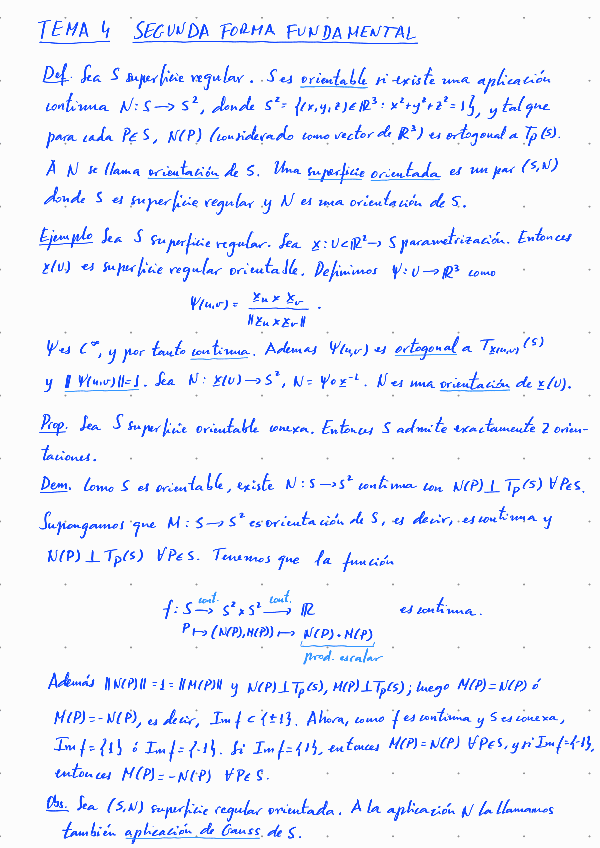 TEMA 4 SEGUNDA FORMA FUNDAMENTAL
Def. Sea S superficie regular. S es orientable si existe una aplicación
continua N: S → S², donde S² = {(x,y,z) ∈ ℝ³ : x²+y²+z² = 1}, y tal que
para cada P∈S, N(P) (considerado como vector de ℝ³) es ortogonal a Tp(S).
A N se llama orientación de S. Una superficie orientada es un par (S,N)
donde S es superficie regular y N es una orientación de S.
Ejemplo Sea S superficie regular. Sea x: U⊂ℝ² → S parametrización. Entonces
x(U) es superficie regular orientable. Definimos Ψ: U → ℝ³ como
Ψ(u,v) = (x_u × x_v) / ‖x_u × x_v‖ .
Ψ es C^∞, y por tanto continua. Ademas Ψ(u,v) es ortogonal a T_x(u,v)(S)
y ‖Ψ(u,v)‖=1. Sea N: x(U) → S², N = Ψ∘x⁻¹. N es una orientación de x(U).
Prop. Sea S superficie orientable conexa. Entonces S admite exactamente 2 orien-
taciones.
Dem. Como S es orientable, existe N: S → S² continua con N(P) ⊥ Tp(S) ∀P∈S.
Supongamos que M: S → S² es orientación de S, es decir, es continua y
N(P) ⊥ Tp(S) ∀P∈S. Tenemos que la función
cont. cont.
f: S → S² × S² → ℝ es continua.
P ↦ (N(P), M(P)) ↦ N(P)·M(P)
prod. escalar
Además ‖N(P)‖ = 1 = ‖M(P)‖ y N(P) ⊥ Tp(S), M(P) ⊥ Tp(S); luego M(P) = N(P) ó
M(P) = -N(P), es decir, Im f ⊂ {±1}. Ahora, como f es continua y S es conexa,
Im f = {1} ó Im f = {-1}. Si Im f = {1}, entonces M(P) = N(P) ∀P∈S, y si Im f = {-1},
entonces M(P) = -N(P) ∀P∈S.
Obs. Sea (S,N) superficie regular orientada. A la aplicación N la llamamos
también aplicación de Gauss de S.